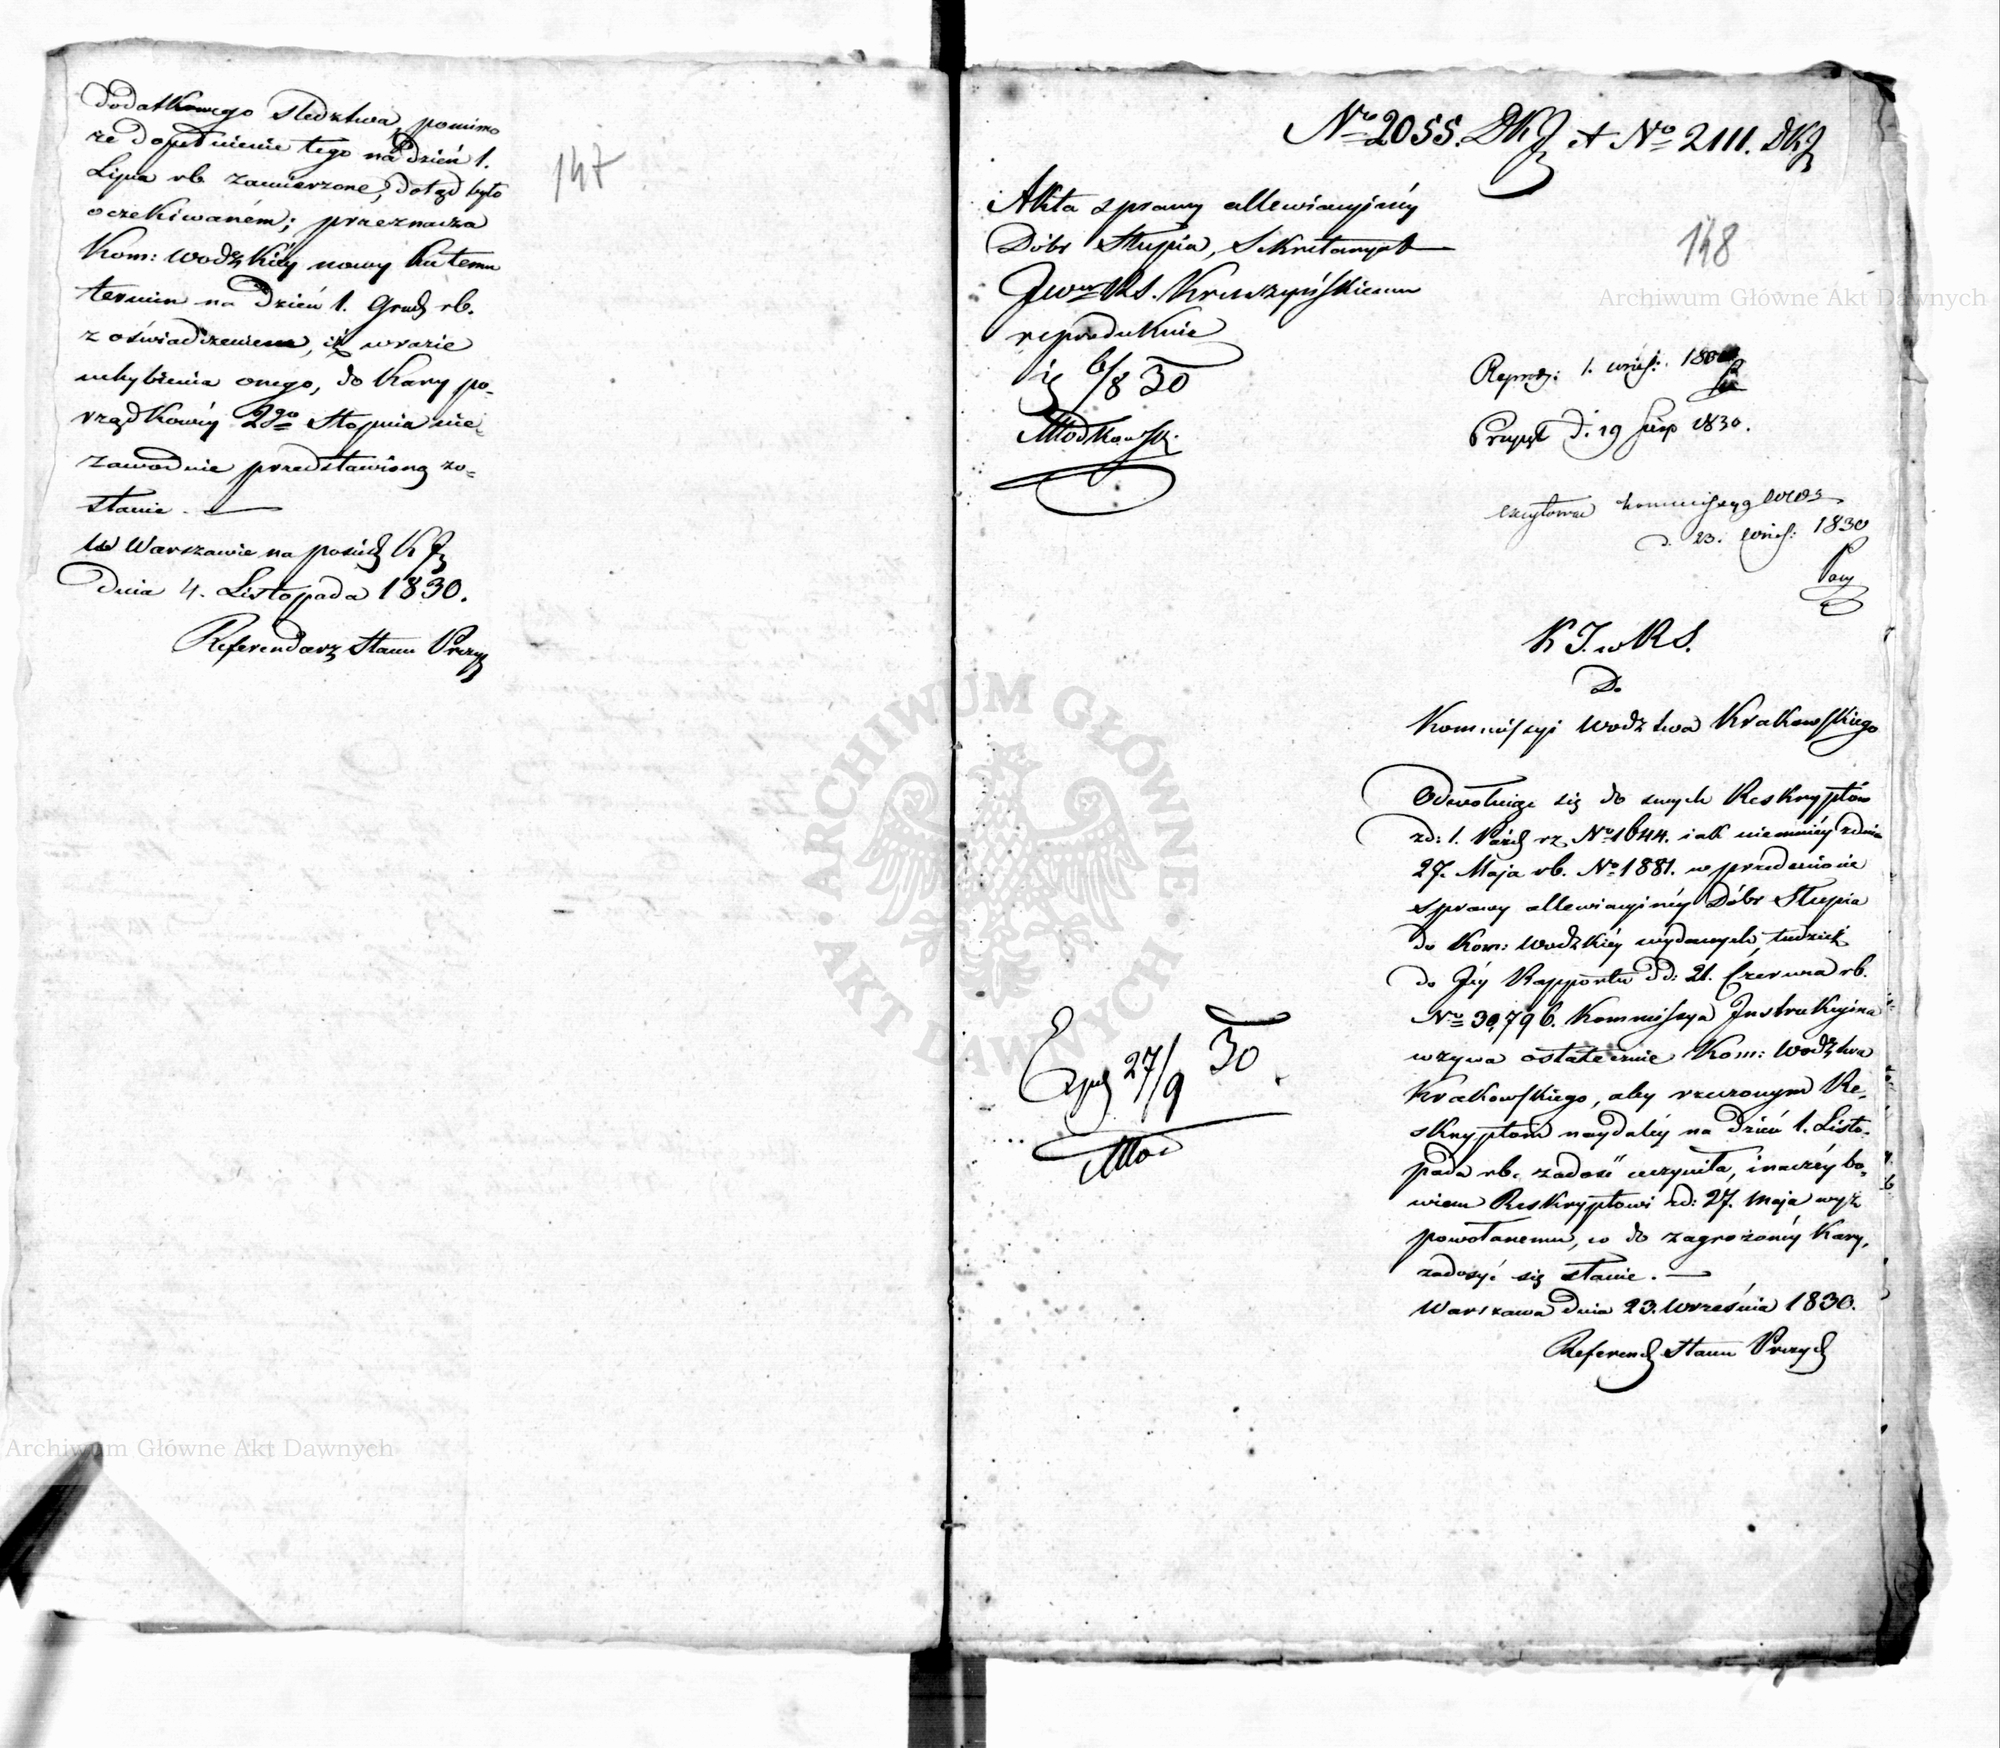 dodatkowego śledztwa, pomimo
że dopełnienie tego na dzień 1.
Lipca rb. zamierzone, dotąd było
oczekiwaném; przeznacza
Kom: Wodzkiéy nowy ku temu
termin na dzień 1. Grud rb.
z oświadczeniem, iż w razie
uchybienia onego, do kary po-
rządkowéy 2go stopnia nie-
zawodnie przedstawioną zo-
stanie.
w Warszawie na posiedz KJ
dnia 4. Listopada 1830.
Referendarz Stanu Prezyd
147
No 2055. DKJ et No 2111. DKJ
148
Akta sprawy allewiacyinéy
Dóbr Słupia, Sekretarzowi
Jeneralnemu Kruszyńskiemu
reprodukuie
6/8 30
Młodkowski
Reprod: 1. wrześ: 1830
Przyszł d. 19 sierp 1830.
excytować kommissyą wdz
d. 23. wrześ: 1830
K J. w R S.
Do
Kommissyi Wodztwa Krakowskiego
Odwołuiąc się do swych Reskryptów
zd: 1. Paźdz rz No 1644. iak niemniéy zdnia
27. Maja rb. No 1881. w przedmiocie
sprawy allewiacyinéy Dóbr Słupia
do Kom: Wodzkiéy wydanych, tudzież
do Jéy Rapportu dd: 21. Czerwca rb.
No 30,796. Kommissya Instrukcyina
wzywa ostatecznie Kom: Wodztwa
Krakowskiego, aby rzeczonym Re-
skryptom naydaléy na dzień 1. Listo-
pada rb. zadość uczyniła, inaczéy bo-
wiem Reskryptowi zd: 27. Maja wyż
powołanemu, co do zagrożonéy kary,
zadosyć się stanie.
Warszawa dnia 23. Września 1830.
Referend Stanu Prezyd
Exped 27/9 30.
Młod
ARCHIWUM GŁÓWNE AKT DAWNYCH
Archiwum Główne Akt Dawnych
Archiwum Główne Akt Dawnych